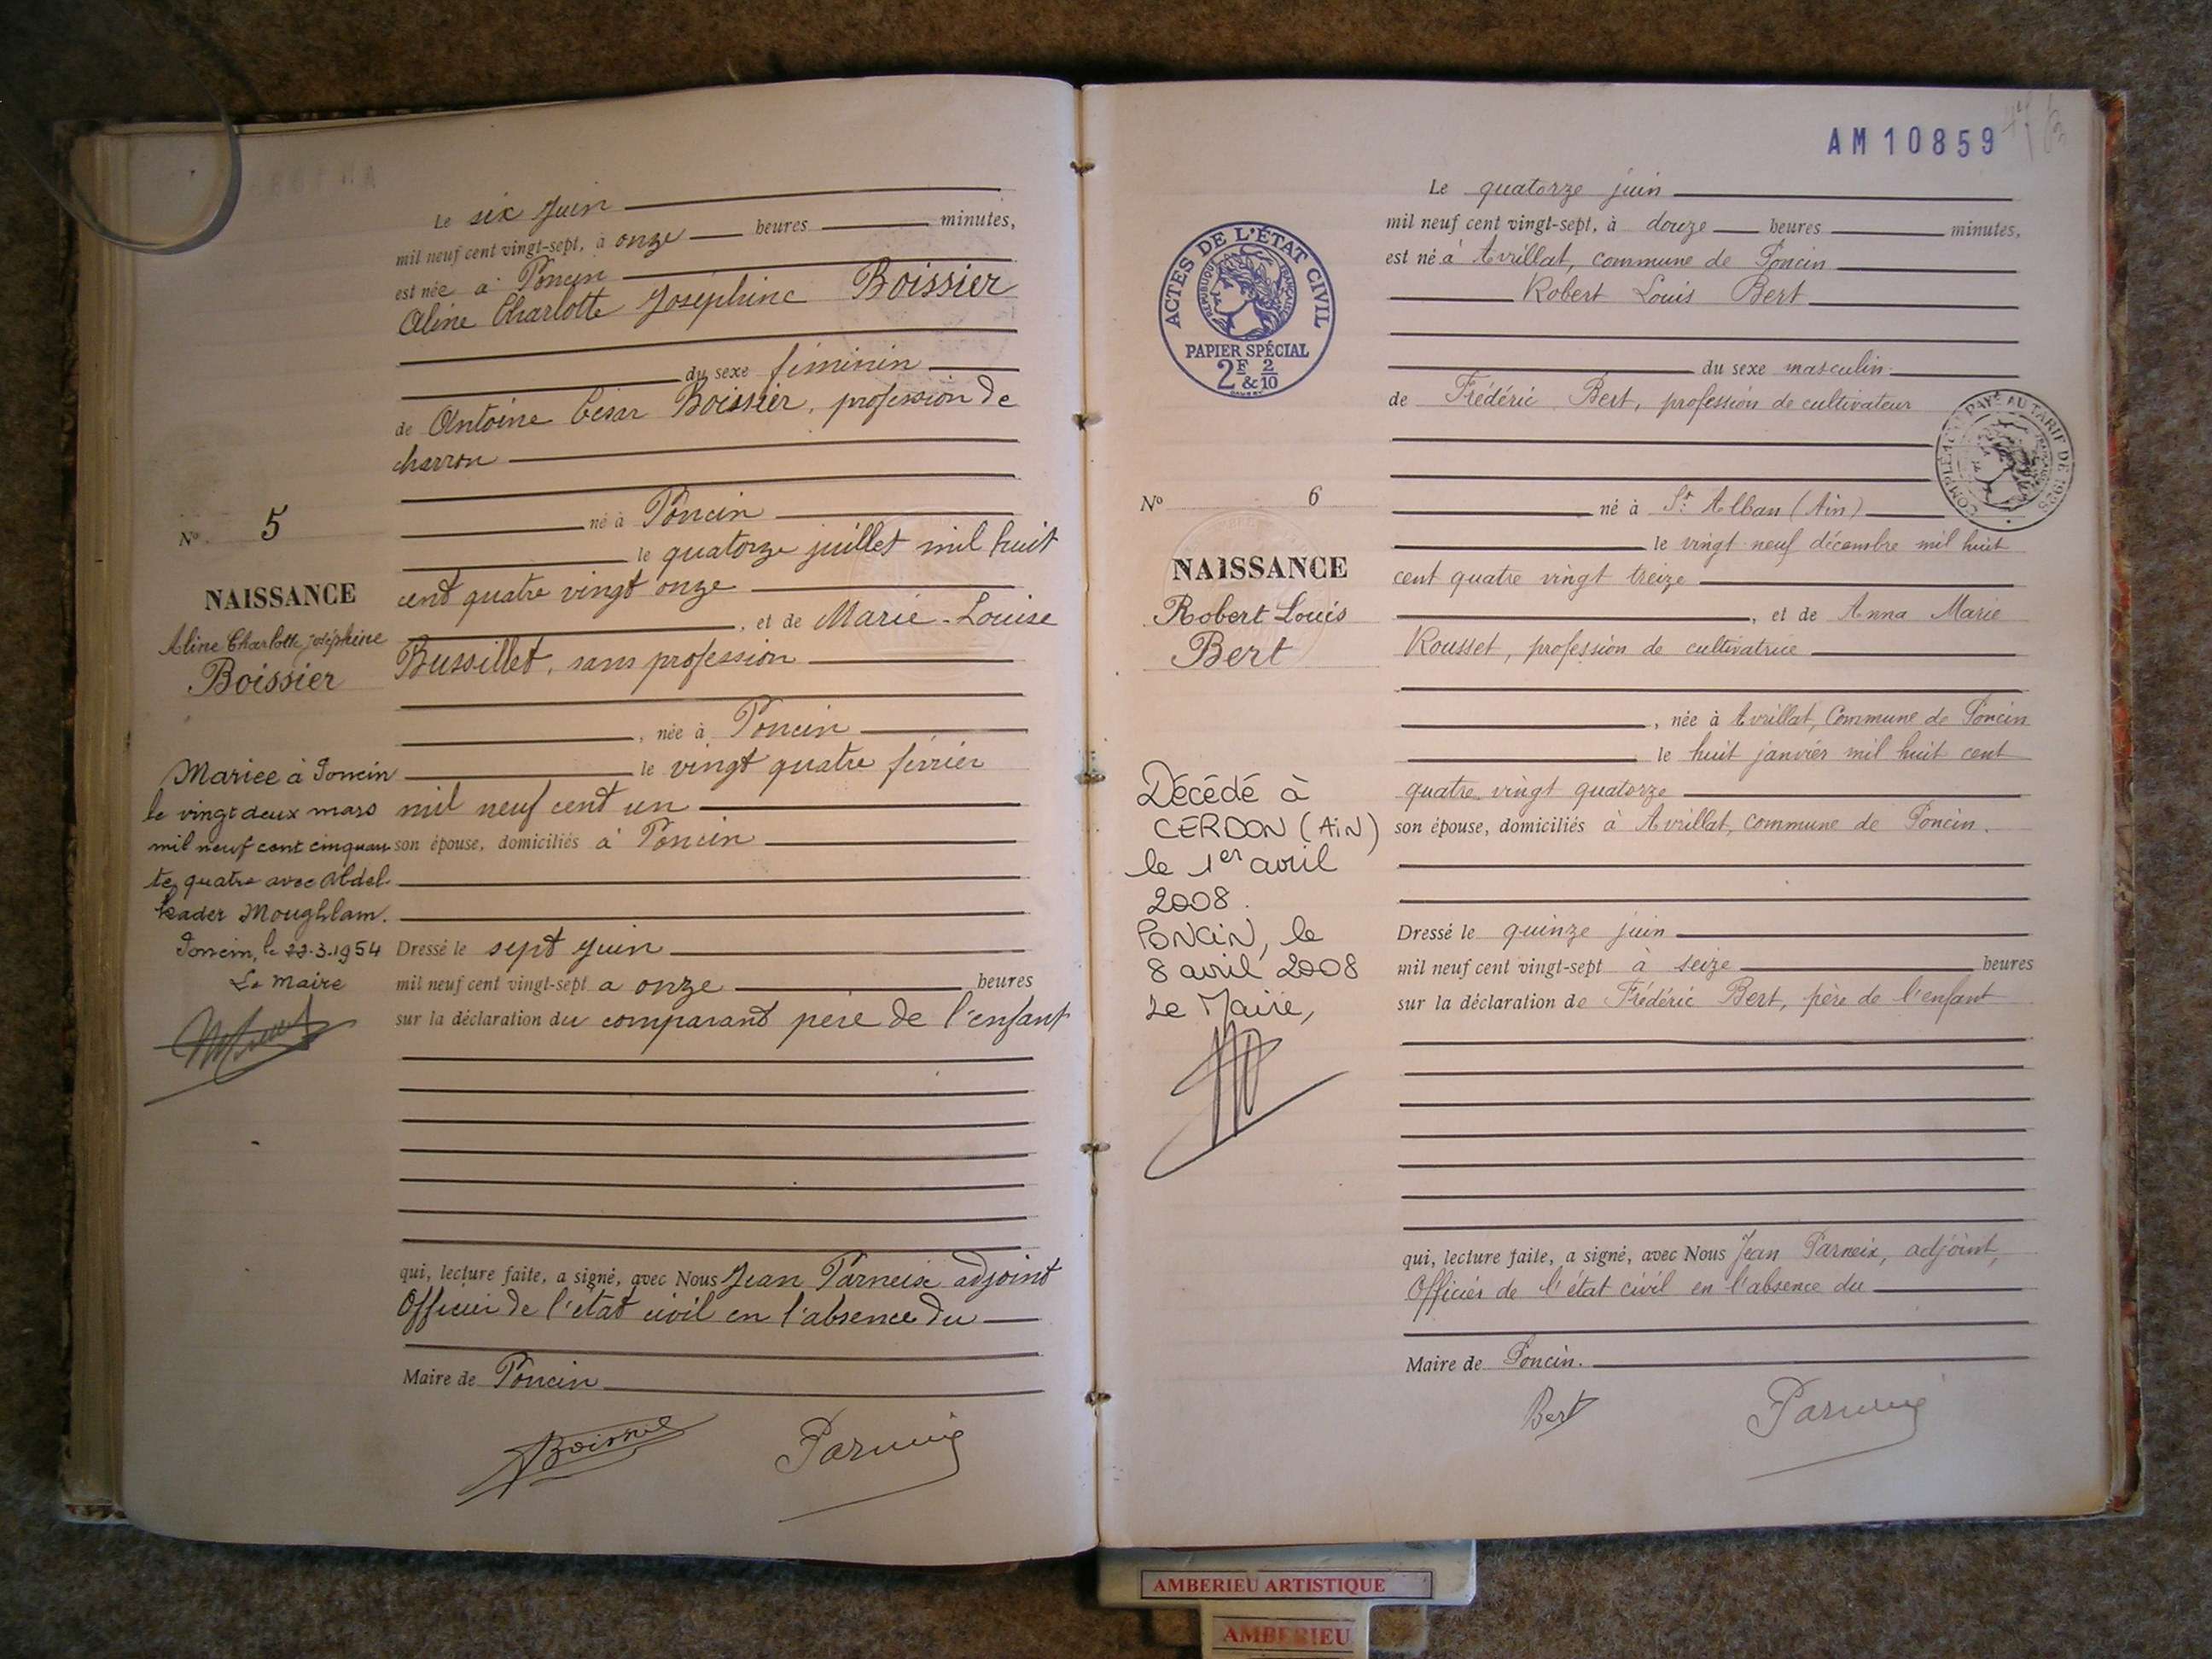 Le six Juin
mil neuf cent vingt-sept, à onze heures minutes,
est née à Poncin
Aline Charlotte Joséphine Boissier
du sexe féminin
de Antoine César Boissier, profession de
charron
né à Poncin
le quatorze juillet mil huit
cent quatre vingt onze
, et de Marie-Louise
Bussillet, sans profession
, née à Poncin
le vingt quatre février
mil neuf cent un
son épouse, domiciliés à Poncin
Dressé le sept Juin
mil neuf cent vingt-sept a onze heures
sur la déclaration du comparant père de l'enfant
qui, lecture faite, a signé, avec Nous Jean Parneix adjoint
Officier de l'état civil en l'absence du
Maire de Poncin
Boissier
Parneix
No 5
NAISSANCE
Aline Charlotte Joséphine
Boissier
Mariée à Poncin
le vingt deux mars
mil neuf cent cinquan
te quatre avec Abdel
kader Moughlam.
Poncin, le 22.3.1954
Le Maire
AM 10859
Le quatorze juin
mil neuf cent vingt-sept, à douze heures minutes,
est né à Avrillat, commune de Poncin
Robert Louis Bert
du sexe masculin
de Frédéric Bert, profession de cultivateur
né à St Alban (Ain)
le vingt neuf décembre mil huit
cent quatre vingt treize
, et de Anna Marie
Rousset, profession de cultivatrice
, née à Avrillat, Commune de Poncin
le huit janvier mil huit cent
quatre vingt quatorze
son épouse, domiciliés à Avrillat, commune de Poncin.
Dressé le quinze juin
mil neuf cent vingt-sept à seize heures
sur la déclaration de Frédéric Bert, père de l'enfant
qui, lecture faite, a signé, avec Nous Jean Parneix, adjoint,
Officier de l'état civil en l'absence du
Maire de Poncin.
Bert
Parneix
ACTES DE L'ÉTAT CIVIL
RÉPUBLIQUE FRANÇAISE
PAPIER SPÉCIAL
2F & 2/10
COMPLÉMENT PAYÉ AU TARIF DE 1925
No 6
NAISSANCE
Robert Louis
Bert
Décédé à
CERDON (AiN)
le 1er avril
2008.
PONCiN, le
8 avril 2008
Le Maire,
AMBERIEU ARTISTIQUE
AMBERIEU